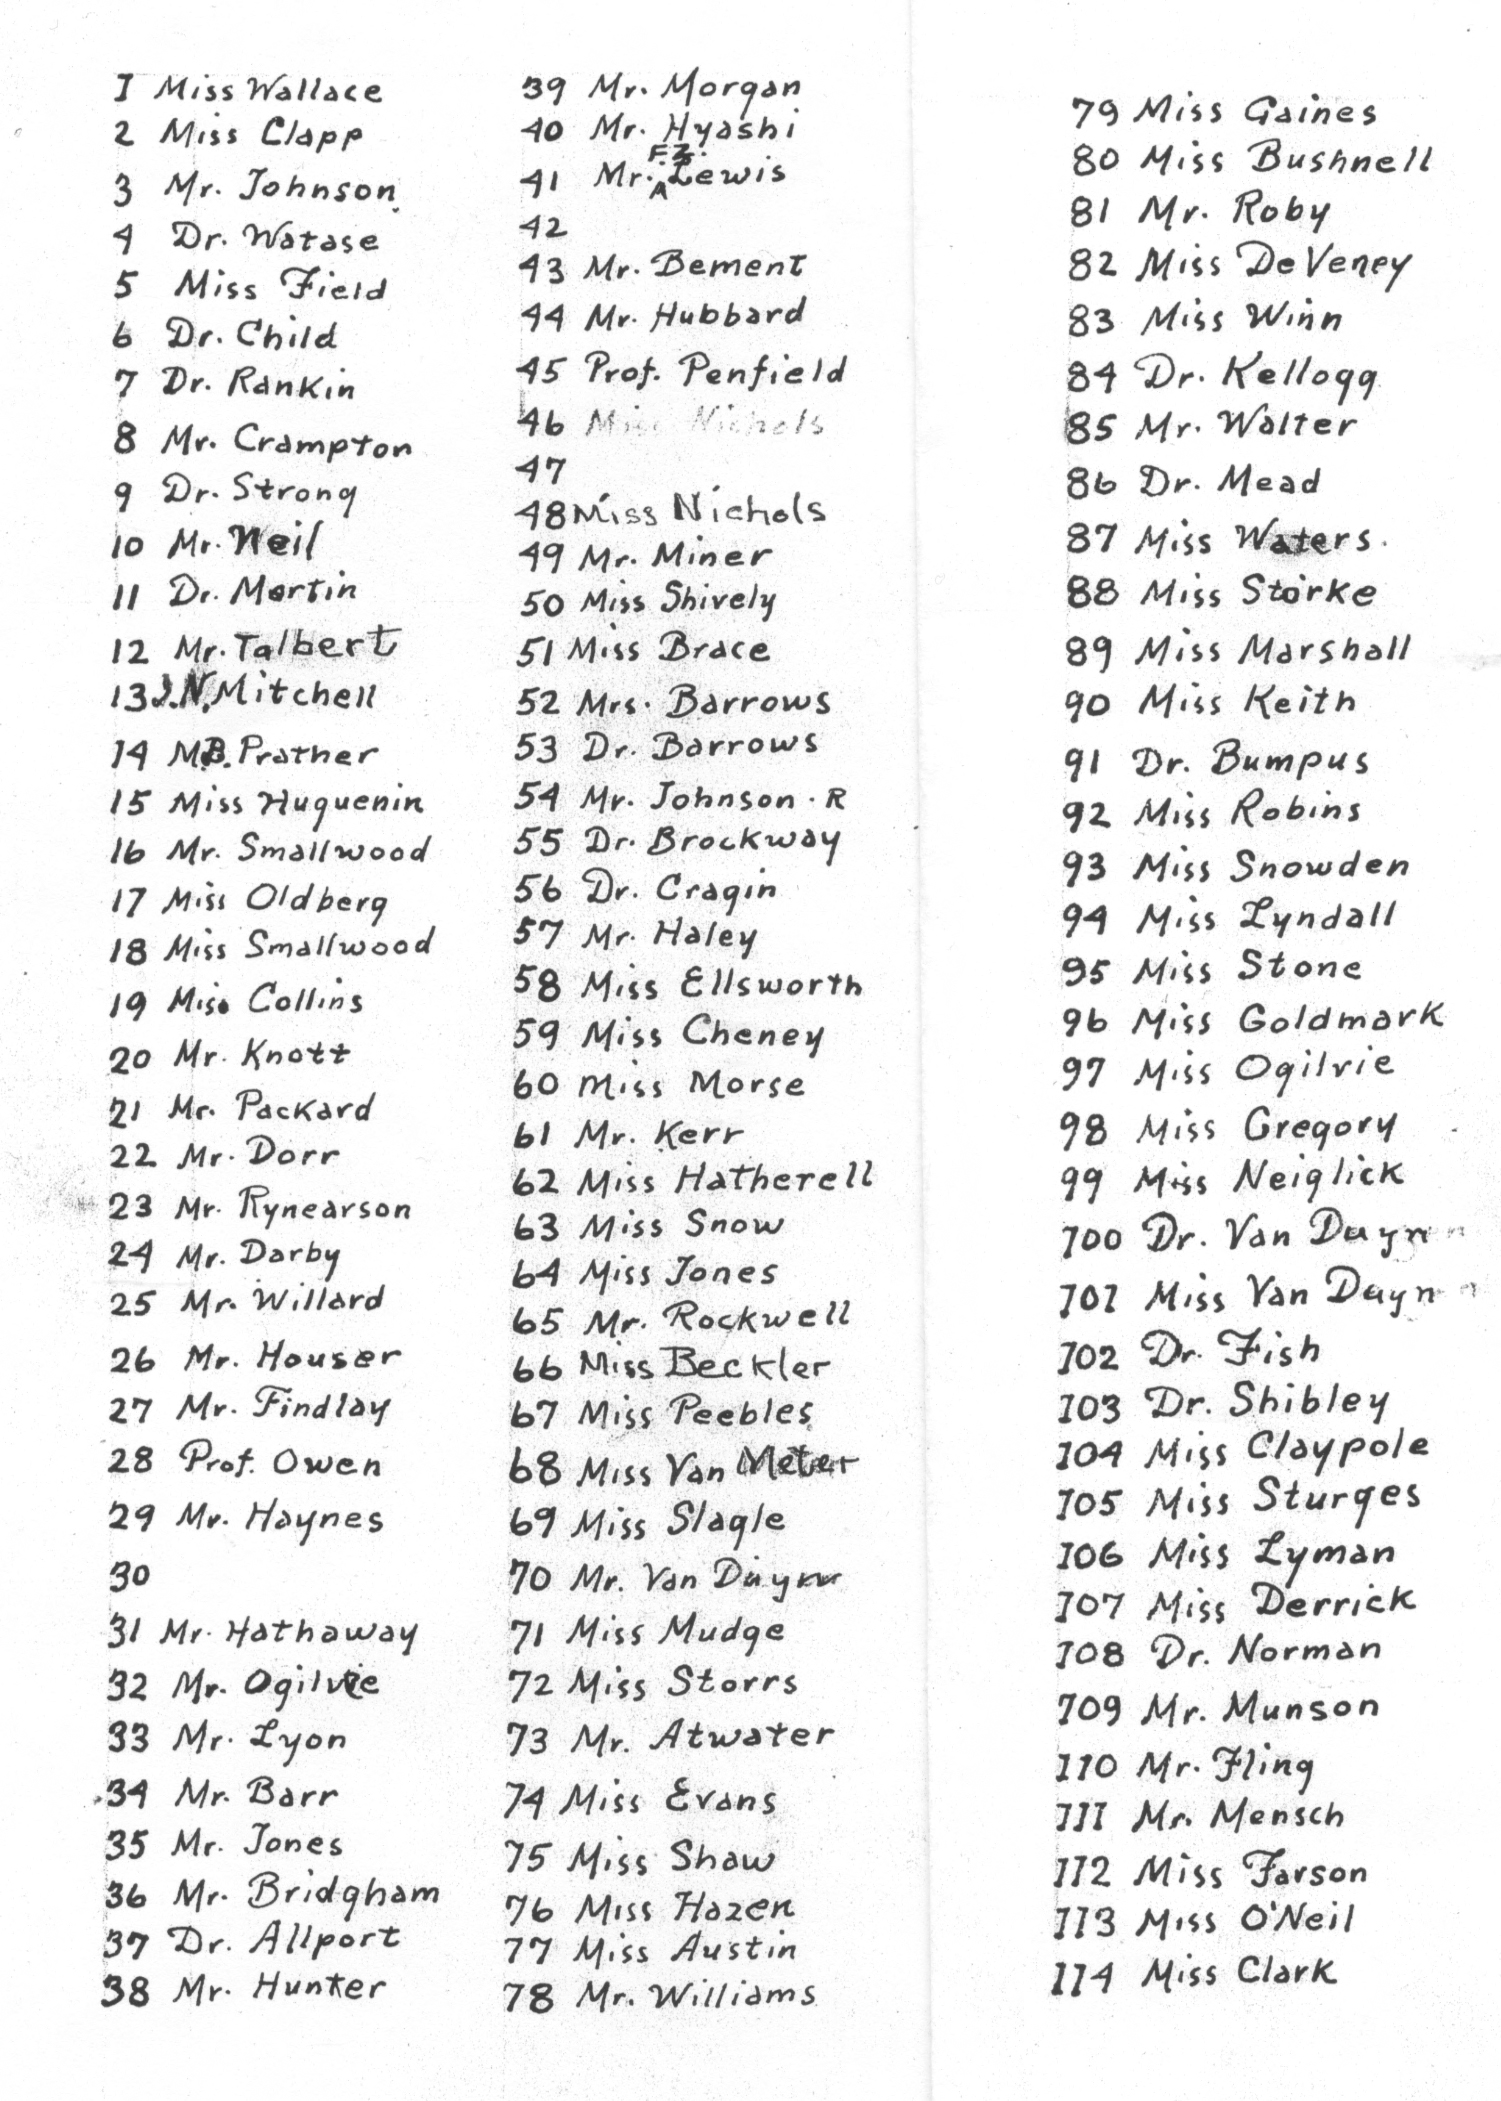 1 Miss Wallace
2 Miss Clapp
3 Mr. Johnson
4 Dr. Watase
5 Miss Field
6 Dr. Child
7 Dr. Rankin
8 Mr. Crampton
9 Dr. Strong
10 Mr. Neil
11 Dr. Martin
12 Mr. Talbert
13 J.N. Mitchell
14 M.B. Prather
15 Miss Huguenin
16 Mr. Smallwood
17 Miss Oldberg
18 Miss Smallwood
19 Miss Collins
20 Mr. Knott
21 Mr. Packard
22 Mr. Dorr
23 Mr. Rynearson
24 Mr. Darby
25 Mr. Willard
26 Mr. Houser
27 Mr. Findlay
28 Prof. Owen
29 Mr. Haynes
30
31 Mr. Hathaway
32 Mr. Ogilvie
33 Mr. Lyon
34 Mr. Barr
35 Mr. Jones
36 Mr. Bridgham
37 Dr. Allport
38 Mr. Hunter
39 Mr. Morgan
40 Mr. Hyashi
41 Mr. F.Z. Lewis
42
43 Mr. Bement
44 Mr. Hubbard
45 Prof. Penfield
46 Miss Nichols
47
48 Miss Nichols
49 Mr. Miner
50 Miss Shively
51 Miss Brace
52 Mrs. Barrows
53 Dr. Barrows
54 Mr. Johnson. R
55 Dr. Brockway
56 Dr. Cragin
57 Mr. Haley
58 Miss Ellsworth
59 Miss Cheney
60 Miss Morse
61 Mr. Kerr
62 Miss Hatherell
63 Miss Snow
64 Miss Jones
65 Mr. Rockwell
66 Miss Beckler
67 Miss Peebles
68 Miss Van Meter
69 Miss Slagle
70 Mr. Van Duyn
71 Miss Mudge
72 Miss Storrs
73 Mr. Atwater
74 Miss Evans
75 Miss Shaw
76 Miss Hazen
77 Miss Austin
78 Mr. Williams
79 Miss Gaines
80 Miss Bushnell
81 Mr. Roby
82 Miss DeVeney
83 Miss Winn
84 Dr. Kellogg
85 Mr. Walter
86 Dr. Mead
87 Miss Waters.
88 Miss Storke
89 Miss Marshall
90 Miss Keith
91 Dr. Bumpus
92 Miss Robins
93 Miss Snowden
94 Miss Lyndall
95 Miss Stone
96 Miss Goldmark
97 Miss Ogilvie
98 Miss Gregory
99 Miss Neiglick
100 Dr. Van Duyn
101 Miss Van Duyn
102 Dr. Fish
103 Dr. Shibley
104 Miss Claypole
105 Miss Sturges
106 Miss Lyman
107 Miss Derrick
108 Dr. Norman
109 Mr. Munson
110 Mr. Fling
111 Mr. Mensch
112 Miss Farson
113 Miss O'Neil
114 Miss Clark